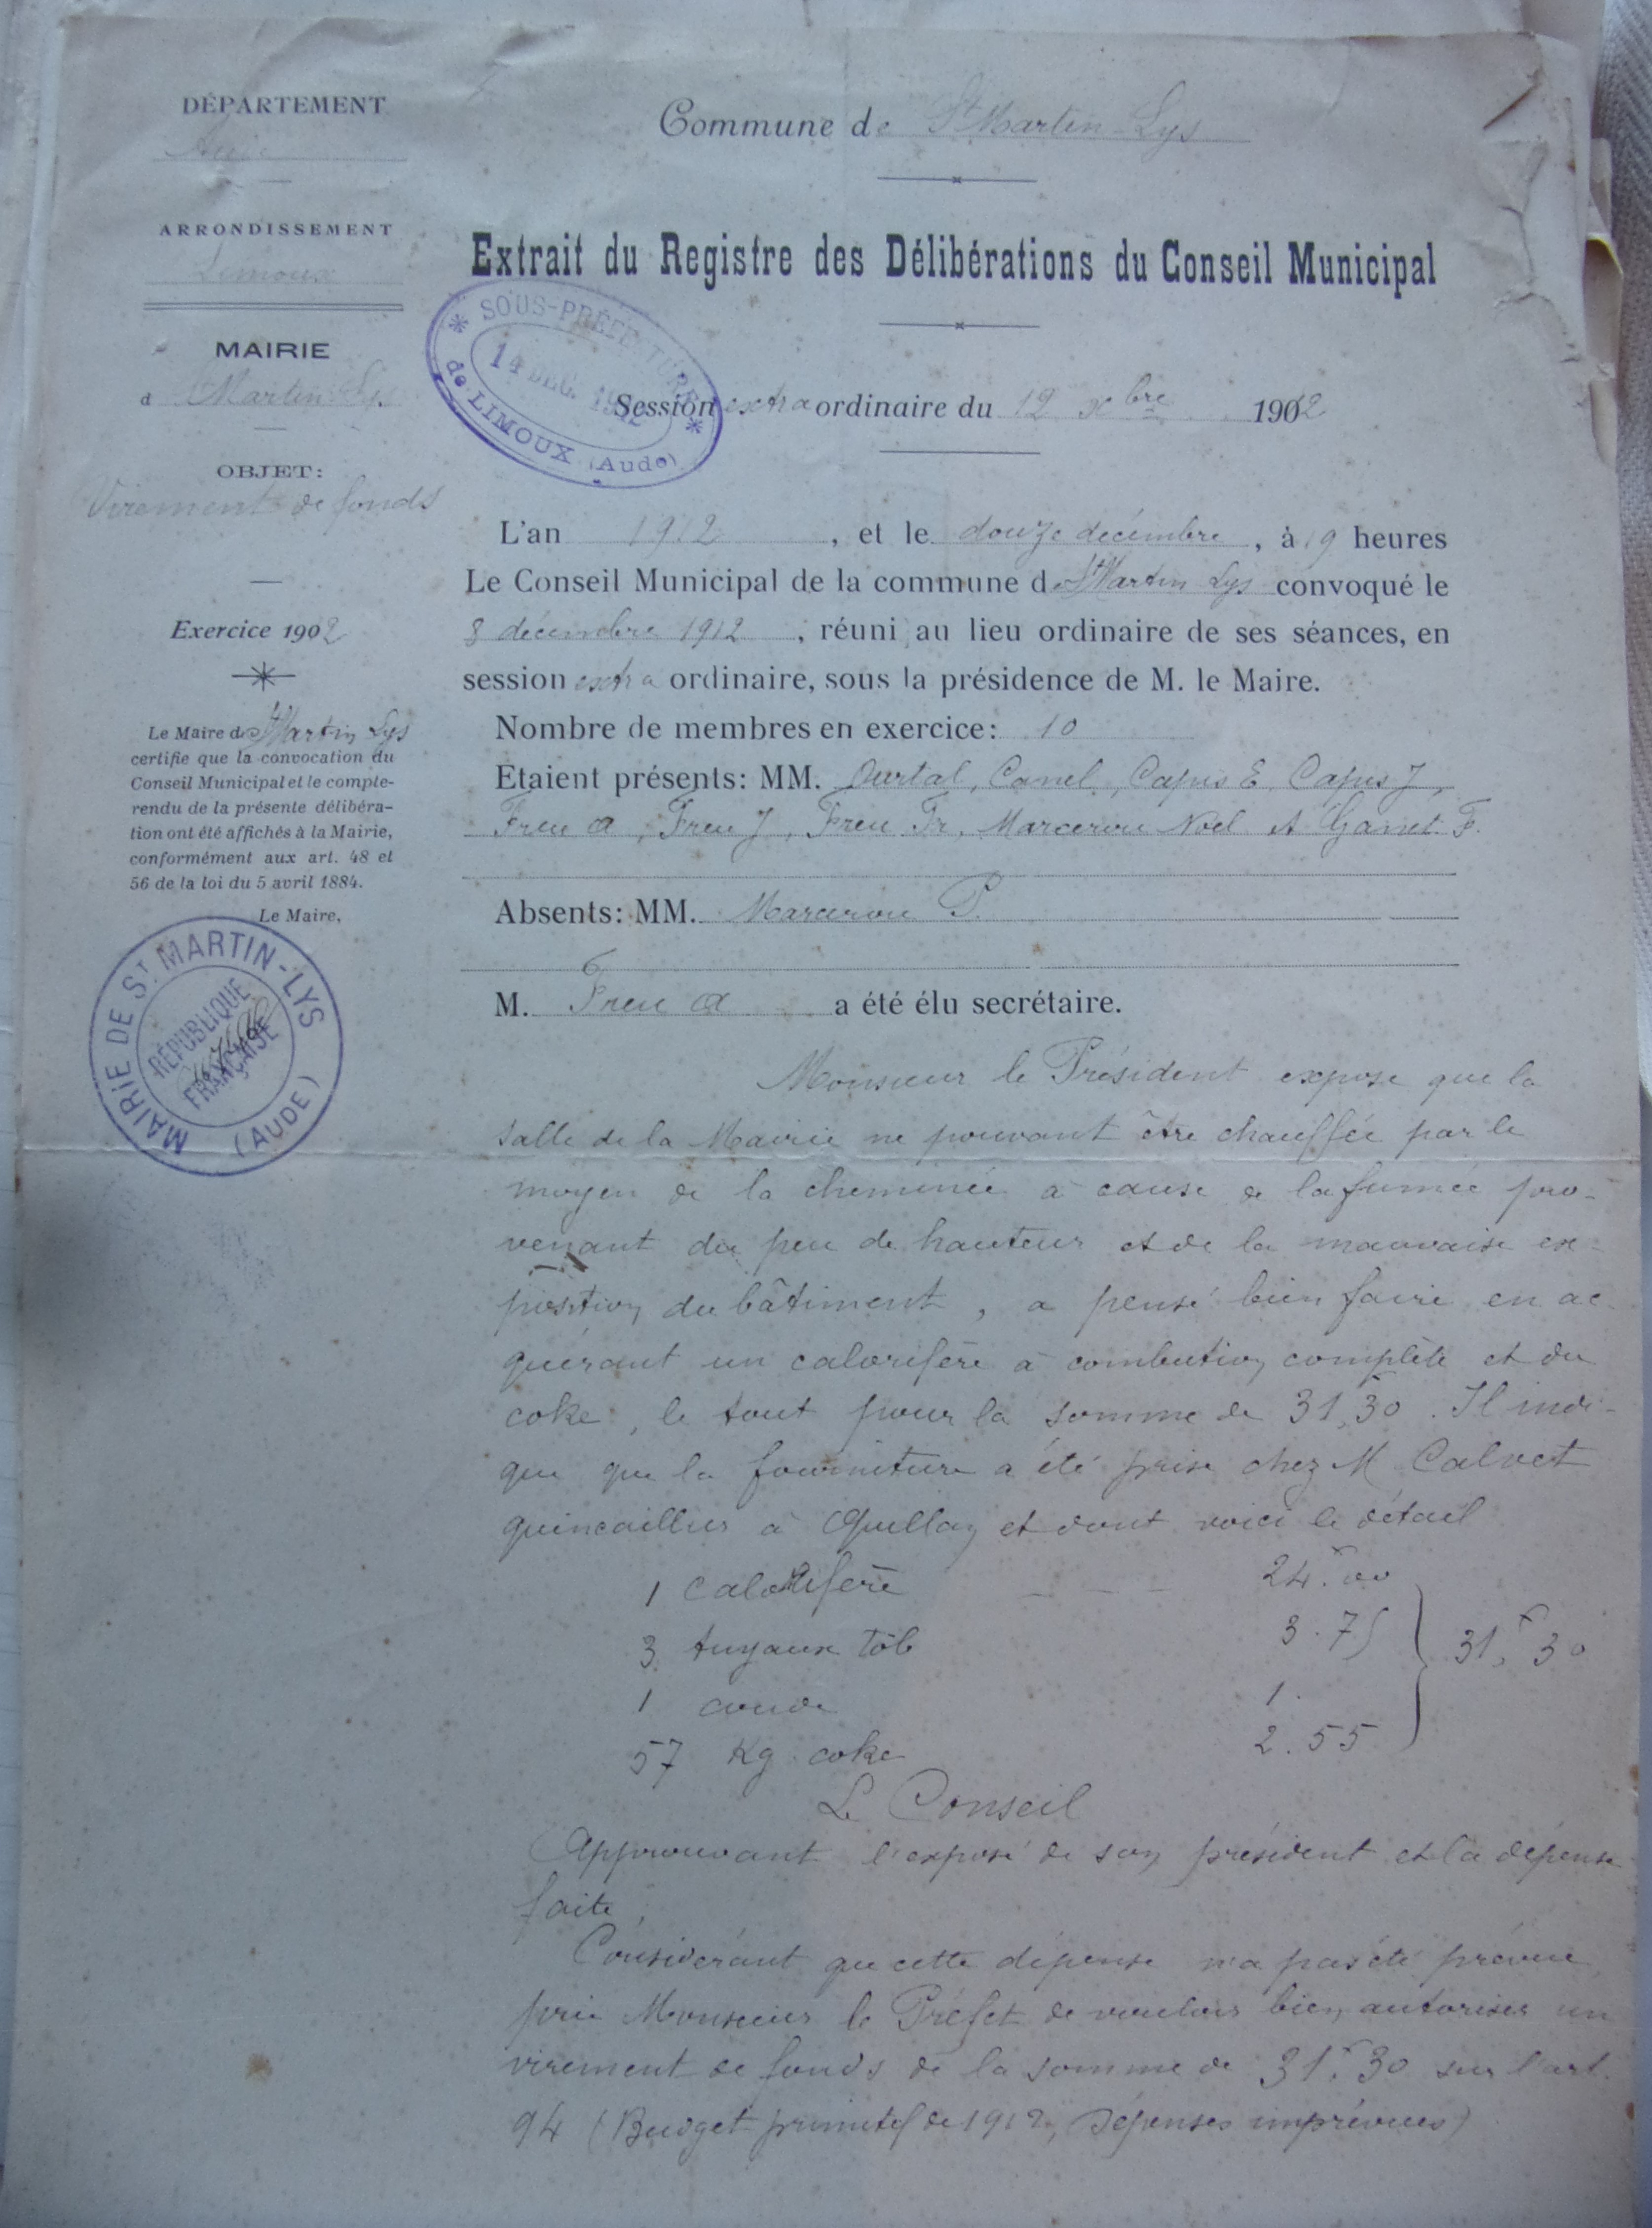 DÉPARTEMENT
Aude
ARRONDISSEMENT
Limoux
MAIRIE
d St Martin Lys
OBJET:
Virement de fonds
Exercice 1902
Le Maire de St Martin Lys
certifie que la convocation du
Conseil Municipal et le compte-
rendu de la présente délibéra-
tion ont été affichés à la Mairie,
conformément aux art. 48 et
56 de la loi du 5 avril 1884.
Le Maire,
MAIRIE DE St MARTIN-LYS
(AUDE)
RÉPUBLIQUE
FRANÇAISE
Commune de St Martin-Lys
Extrait du Registre des Délibérations du Conseil Municipal
SOUS-PRÉFECTURE
14 DEC. 1912
de LIMOUX (Aude)
Session extraordinaire du 12 xbre 1902
L'an 1912, et le douze décembre, à 19 heures
Le Conseil Municipal de la commune de St Martin Lys convoqué le
8 décembre 1912, réuni au lieu ordinaire de ses séances, en
session extra ordinaire, sous la présidence de M. le Maire.
Nombre de membres en exercice: 10
Etaient présents: MM. Ourtal, Canel, Capus E, Capus J,
Freu A, Freu J, Freu Fr, Marcerou Noël et F.
Absents: MM. Marcerou P.
M. Freu A a été élu secrétaire.
Monsieur le Président expose que la
salle de la Mairie ne pouvant être chauffée par le
moyen de la cheminée à cause de la fumée pro-
venant du peu de hauteur et de la mauvaise ex-
position du bâtiment, a pensé bien faire en ac-
quérant un calorifère à combustion complète et du
coke, le tout pour la somme de 31f,30. Il indi-
que que la fourniture a été prise chez M Calvet
quincaillier à Quillan et dont voici le détail
1 Calorifère - - - 24f.00
3 tuyaux tôle 3.75
1 coude 1.
57 Kg coke 2.55
31f,30
Le Conseil
Approuvant l'exposé de son président et la dépense
faite,
Considérant que cette dépense n'a pas été prévue,
prie Monsieur le Préfet de vouloir bien autoriser un
virement de fonds de la somme de 31f,30 sur l'art.
94 (Budget primitif de 1912, Dépenses imprévues)